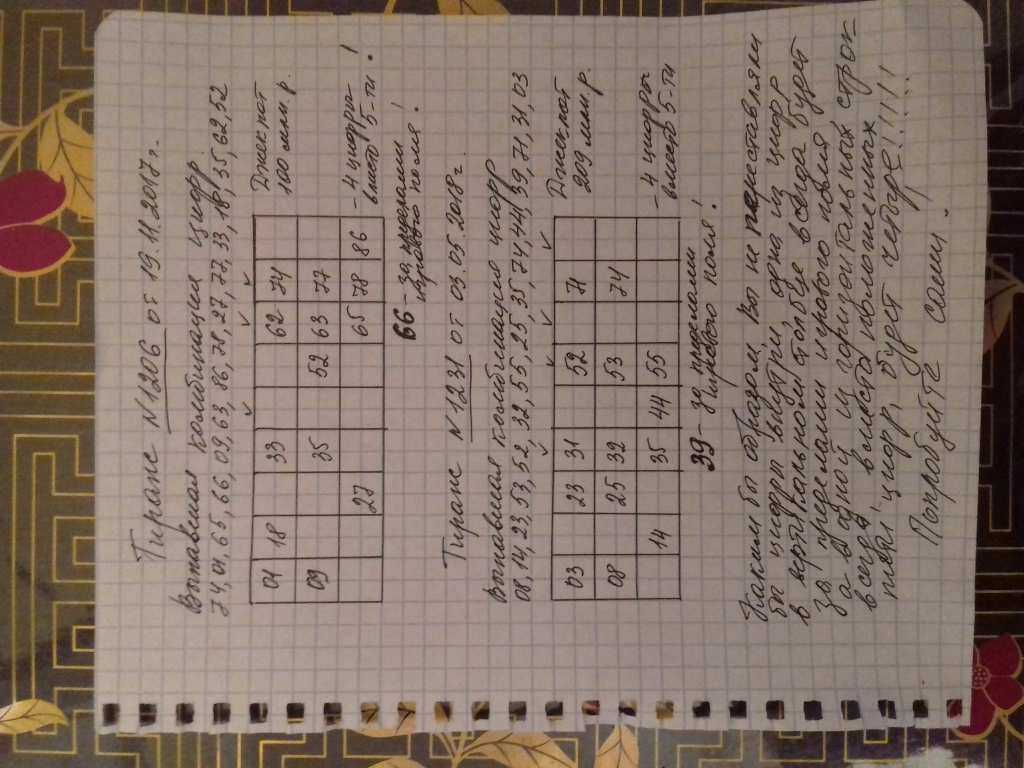 Тираж N1206 от 19.11.2017 г.
Выпавшая комбинация цифр
74,01,65,66,09,63,86,78,27,77,33,18,35,62,52
01 18 33 62 74
09 35 52 63 77
27 65 78 86
Джекпот
100 млн. р.
- 4 цифры
вместо 5-ти!
66 - за пределами
игрового поля!
Тираж N1231 от 03.05.2018 г.
Выпавшая комбинация цифр
08,14,23,53,52,32,55,25,35,74,44,39,71,31,03
03 23 31 52 71
08 25 32 53 74
14 35 44 55
Джекпот
209 млн. р.
- 4 цифры
вместо 5-ти
39 - за пределами
игрового поля!
Каким бы образом Вы не переставляли
бы цифры внутри, одна из цифр
в вертикальном столбце всегда будет
за пределами игрового поля,
а в одной из горизонтальных строк
всегда, вместо положенных
пяти, цифр, будет четыре!!!!!
Попробуйте сами!